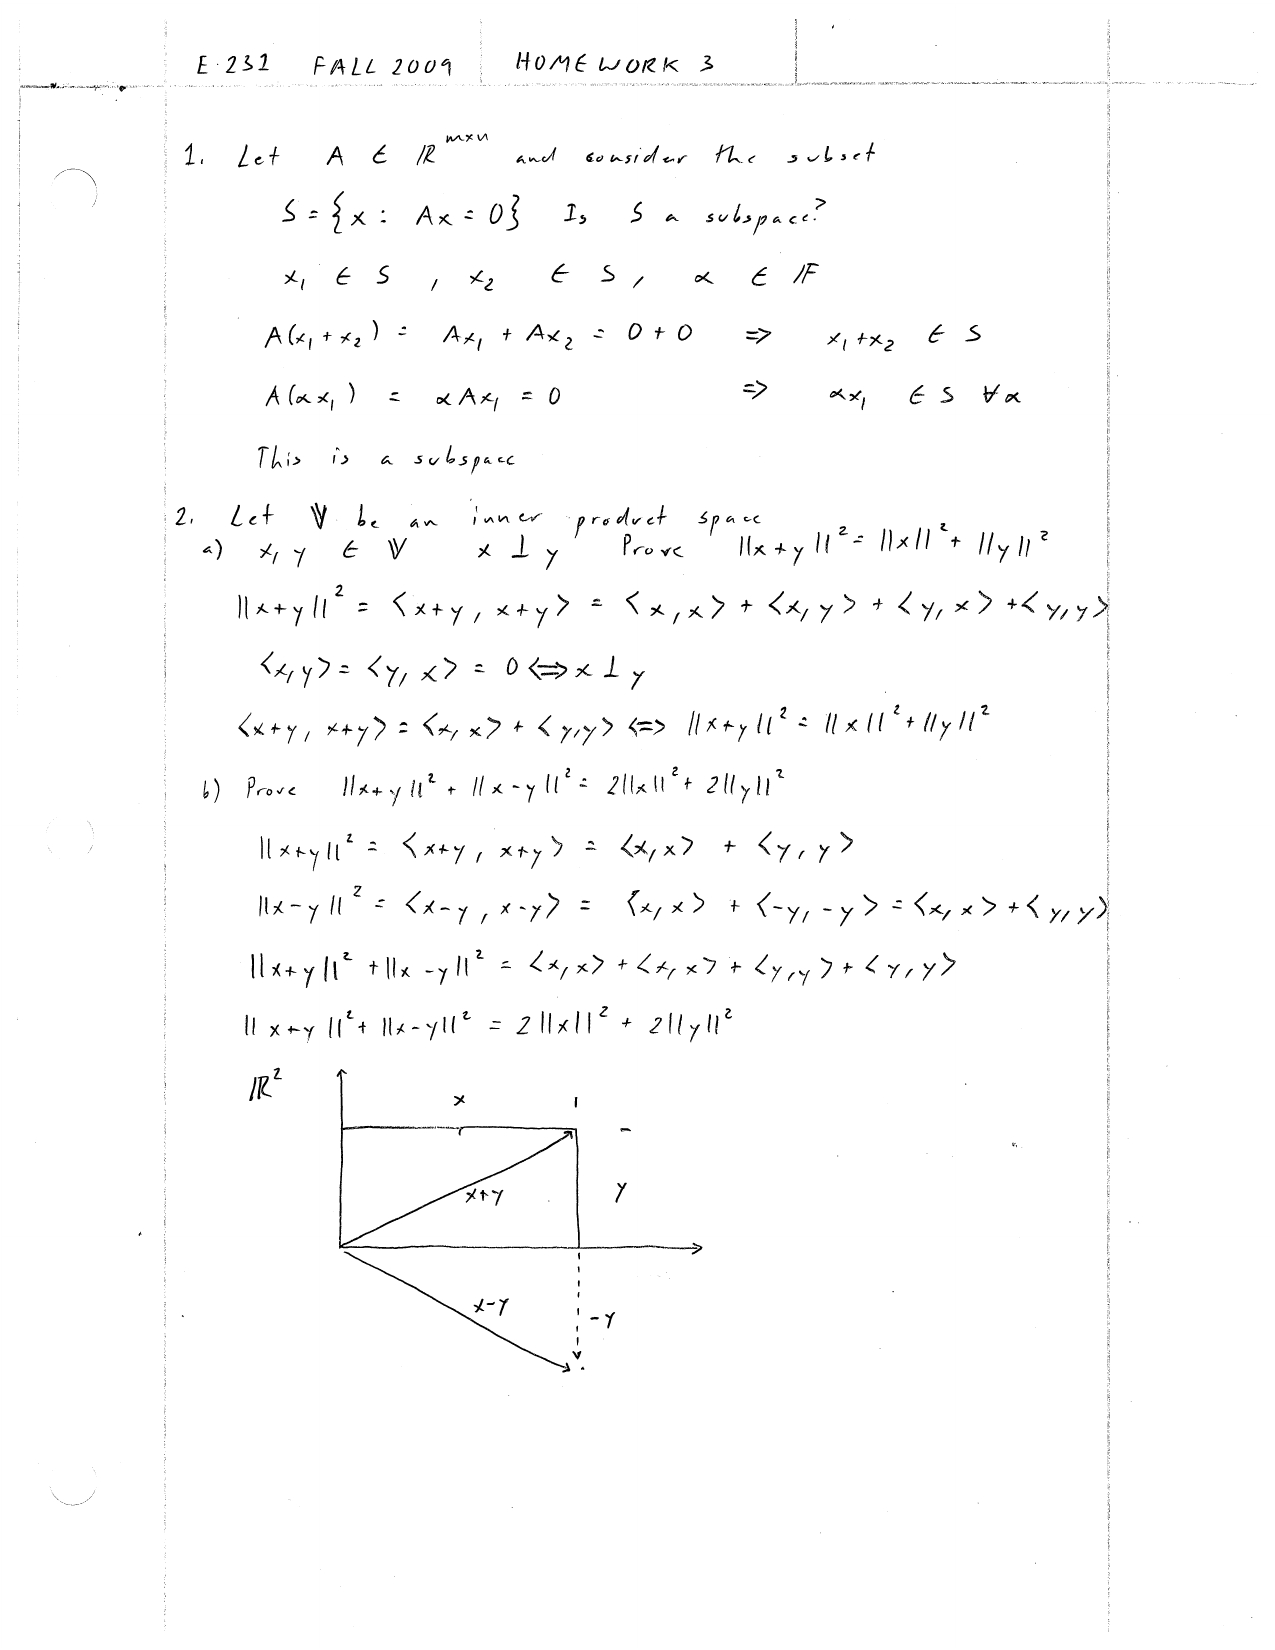 E 231 FALL 2009 HOMEWORK 3
1. Let A ∈ ℝ^{m×n} and consider the subset
S = {x : Ax = 0} Is S a subspace?
x₁ ∈ S , x₂ ∈ S, α ∈ 𝔽
A(x₁ + x₂) = Ax₁ + Ax₂ = 0 + 0 ⇒ x₁+x₂ ∈ S
A(αx₁) = αAx₁ = 0 ⇒ αx₁ ∈ S ∀α
This is a subspace
2. Let 𝕍 be an inner product space
a) x, y ∈ 𝕍 x ⊥ y Prove ||x+y||² = ||x||² + ||y||²
||x+y||² = <x+y, x+y> = <x,x> + <x,y> + <y,x> + <y,y>
<x,y> = <y,x> = 0 ⇔ x ⊥ y
<x+y, x+y> = <x,x> + <y,y> ⇔ ||x+y||² = ||x||² + ||y||²
b) Prove ||x+y||² + ||x-y||² = 2||x||² + 2||y||²
||x+y||² = <x+y, x+y> = <x,x> + <y,y>
||x-y||² = <x-y, x-y> = <x,x> + <-y,-y> = <x,x> + <y,y>
||x+y||² + ||x-y||² = <x,x> + <x,x> + <y,y> + <y,y>
||x+y||² + ||x-y||² = 2||x||² + 2||y||²
ℝ²
x
x+y
y
x-y
-y